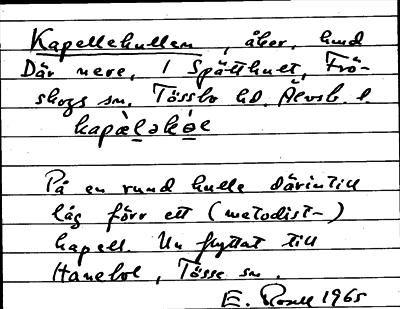 Kapellekullen, åker, hmd
Där nere, i Spätthult, Frö-
skogs sn. Tössbo hd. Älvsb. l.
kapä̀ləkó̤l
På en rund kulle därintill
låg förr ett (metodist-)
kapell. Nu flyttat till
Hanebol, Tösse sn.
E. Rosell 1965